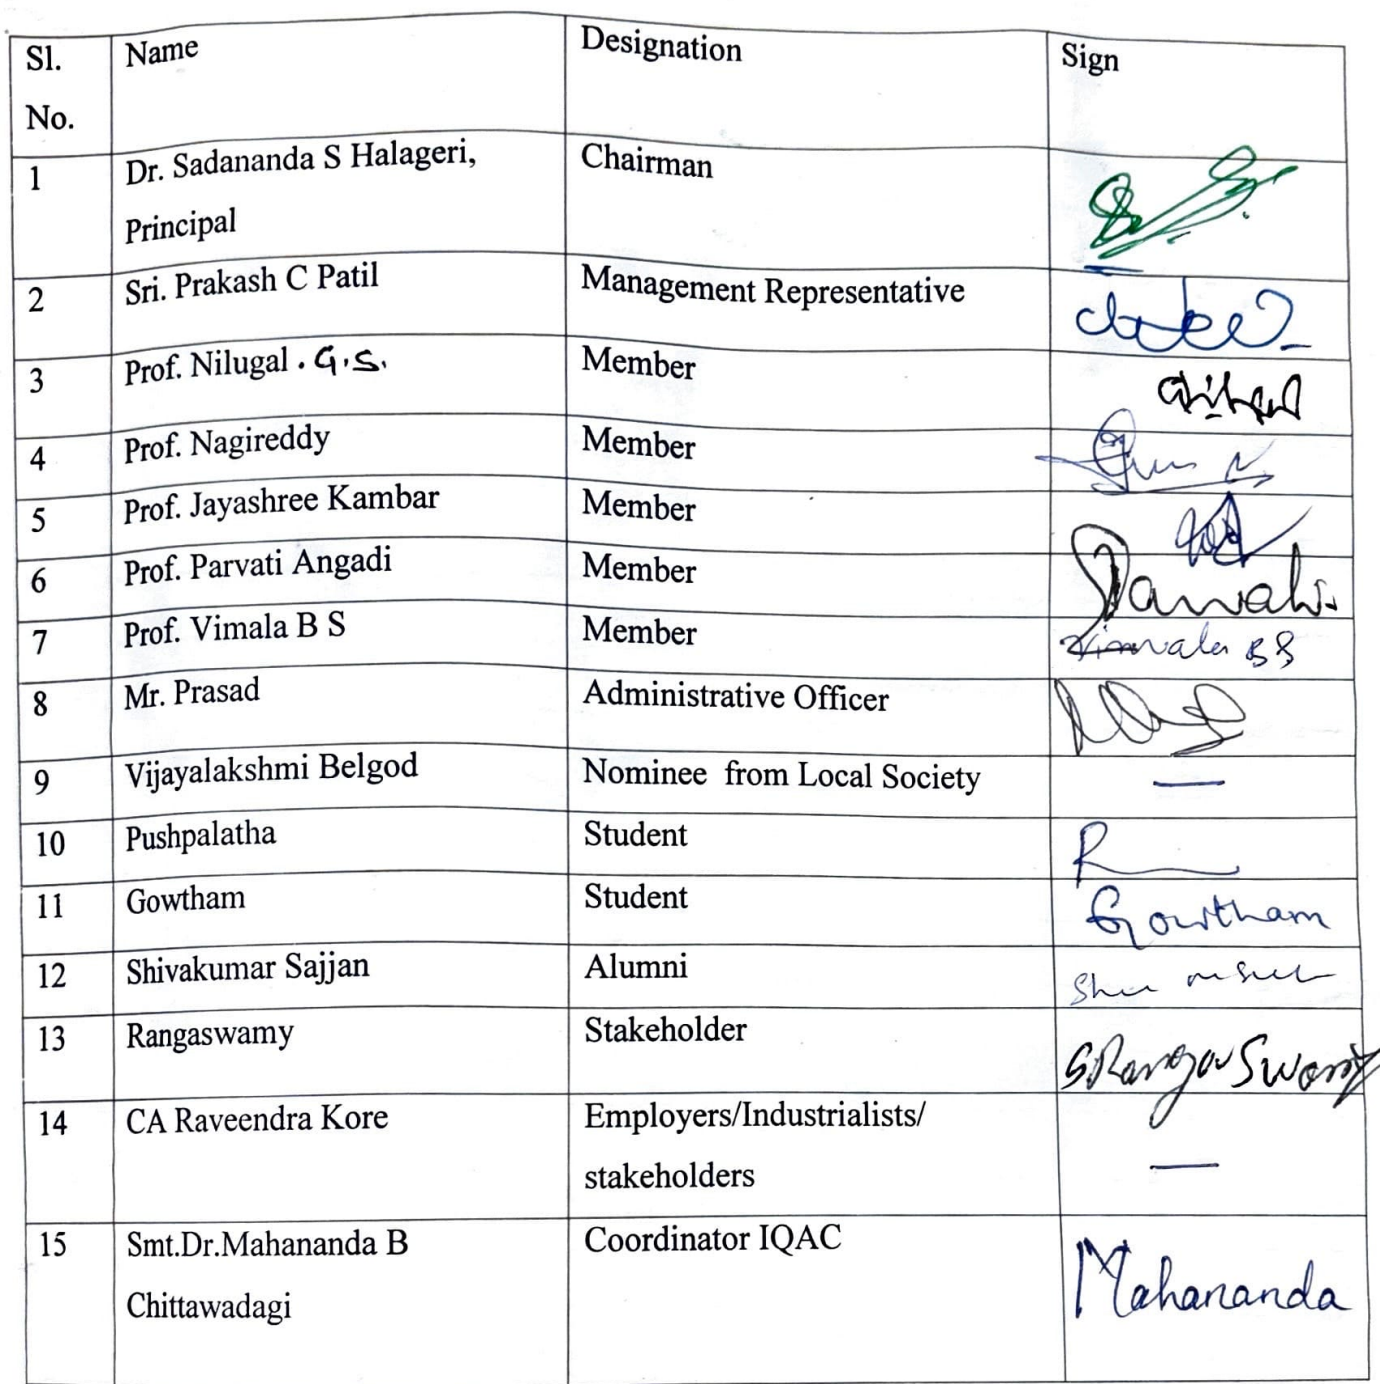 Sl. No. Name Designation Sign
1 Dr. Sadananda S Halageri, Chairman
Principal
2 Sri. Prakash C Patil Management Representative
3 Prof. Nilugal . G.S. Member
4 Prof. Nagireddy Member
5 Prof. Jayashree Kambar Member
6 Prof. Parvati Angadi Member
7 Prof. Vimala B S Member Vimala BS
8 Mr. Prasad Administrative Officer
9 Vijayalakshmi Belgod Nominee from Local Society —
10 Pushpalatha Student
11 Gowtham Student Gowtham
12 Shivakumar Sajjan Alumni
13 Rangaswamy Stakeholder S Rangaswamy
14 CA Raveendra Kore Employers/Industrialists/
stakeholders —
15 Smt.Dr.Mahananda B Coordinator IQAC Mahananda
Chittawadagi